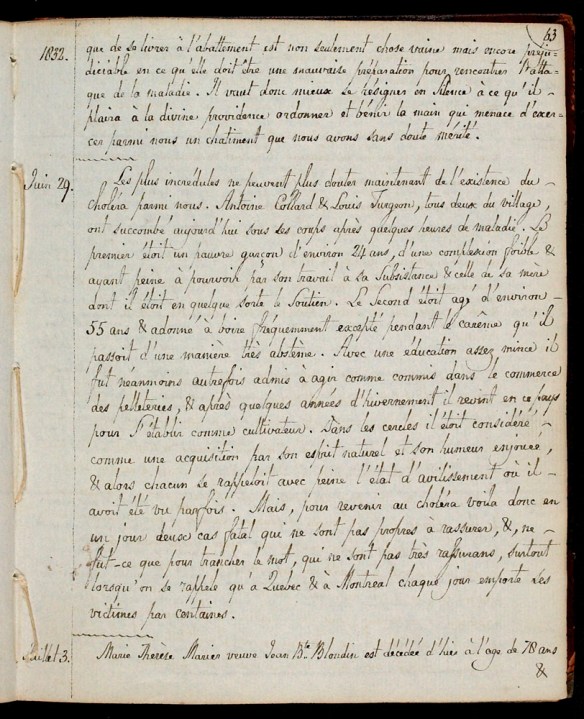 63
1832. que de se livrer à l'abattement est non seulement chose vaine mais encore préju=
diciable en ce qu'elle doit être une mauvaise préparation pour rencontrer l'atta-
que de la maladie. Il vaut donc mieux se résigner en silence à ce qu'il -
plaira à la divine providence ordonner et bénir la main qui menace d'exer-
cer parmi nous un chatiment que nous avons sans doute mérité.
Juin 29. Les plus incrédules ne peuvent plus douter maintenant de l'existence du -
choléra parmi nous. Antoine Collard & Louis Turgeon, tous deux du village,
ont succombé aujourd'hui sous ses coups après quelques heures de maladie. Le
premier étoit un pauvre garçon d'environ 24 ans, d'une complexion foible &
ayant peine à pourvoir par son travail à sa subsistance & celle de sa mère
dont il étoit en quelque sorte le soutien. Le Second étoit agé d'environ -
55 ans & adonné à boire fréquemment excepté pendant le carême qu'il
passoit d'une manière très abstème. Avec une éducation assez mince il
fut néanmoins autrefois admis à agir comme commis dans le commerce
des pelleteries, & après quelques années d'hivernement il revint en ce pays
pour s'établir comme cultivateur. Dans les cercles il étoit considéré
comme une acquisition par son esprit naturel et son humeur enjouée,
& alors chacun se rappeloit avec peine l'état d'avilissement où il -
avoit été vu parfois. Mais, pour revenir au choléra voila donc en
un jour deux cas fatal qui ne sont pas propres a rassurer, &, ne -
fut-ce que pour trancher le mot, qui ne sont pas très rassurans, surtout
lorsqu'on se rappele qu'à Quebec & à Montreal chaque jour emporte ses
victimes par centaines.
Juillet 3. Marie Therèse Marier veuve Jean Bte Blondin est décédée d'hier à l'age de 78 ans
&